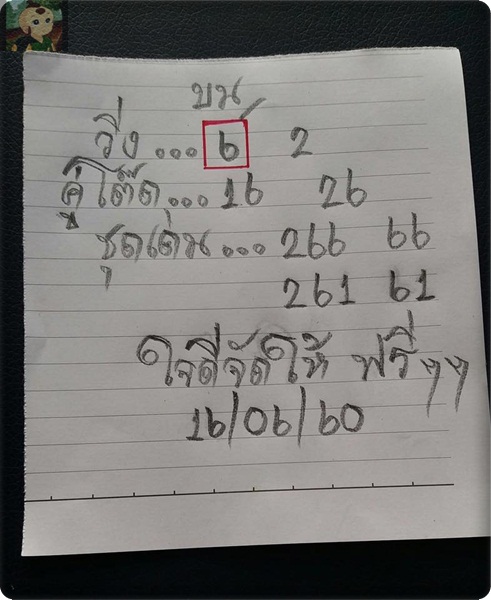 บน
วิ่ง...6 2
คู่โต๊ด...16 26
ชุดเด่น...266 66
261 61
ใจดีจัดให้ ฟรีๆๆ
16/06/60